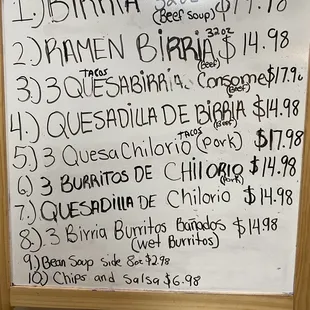 1.) BIRRIA (Beef Soup)
2.) RAMEN BIRRIA 32oz (Beef) $14.98
3.) 3 QUESABIRRIA TACOS Consome (Beef) $17.9
4.) QUESADILLA DE BIRRIA (Beef) $14.98
5.) 3 QuesaChilorio TACOS (Pork) $17.98
6.) 3 BURRITOS DE CHILORIO (Pork) $14.98
7.) QUESADILLA DE Chilorio $14.98
8.) 3 Birria Burritos Bañados $14.98
(Wet Burritos)
9.) Bean Soup side 8oz $2.98
10.) Chips and Salsa $6.98